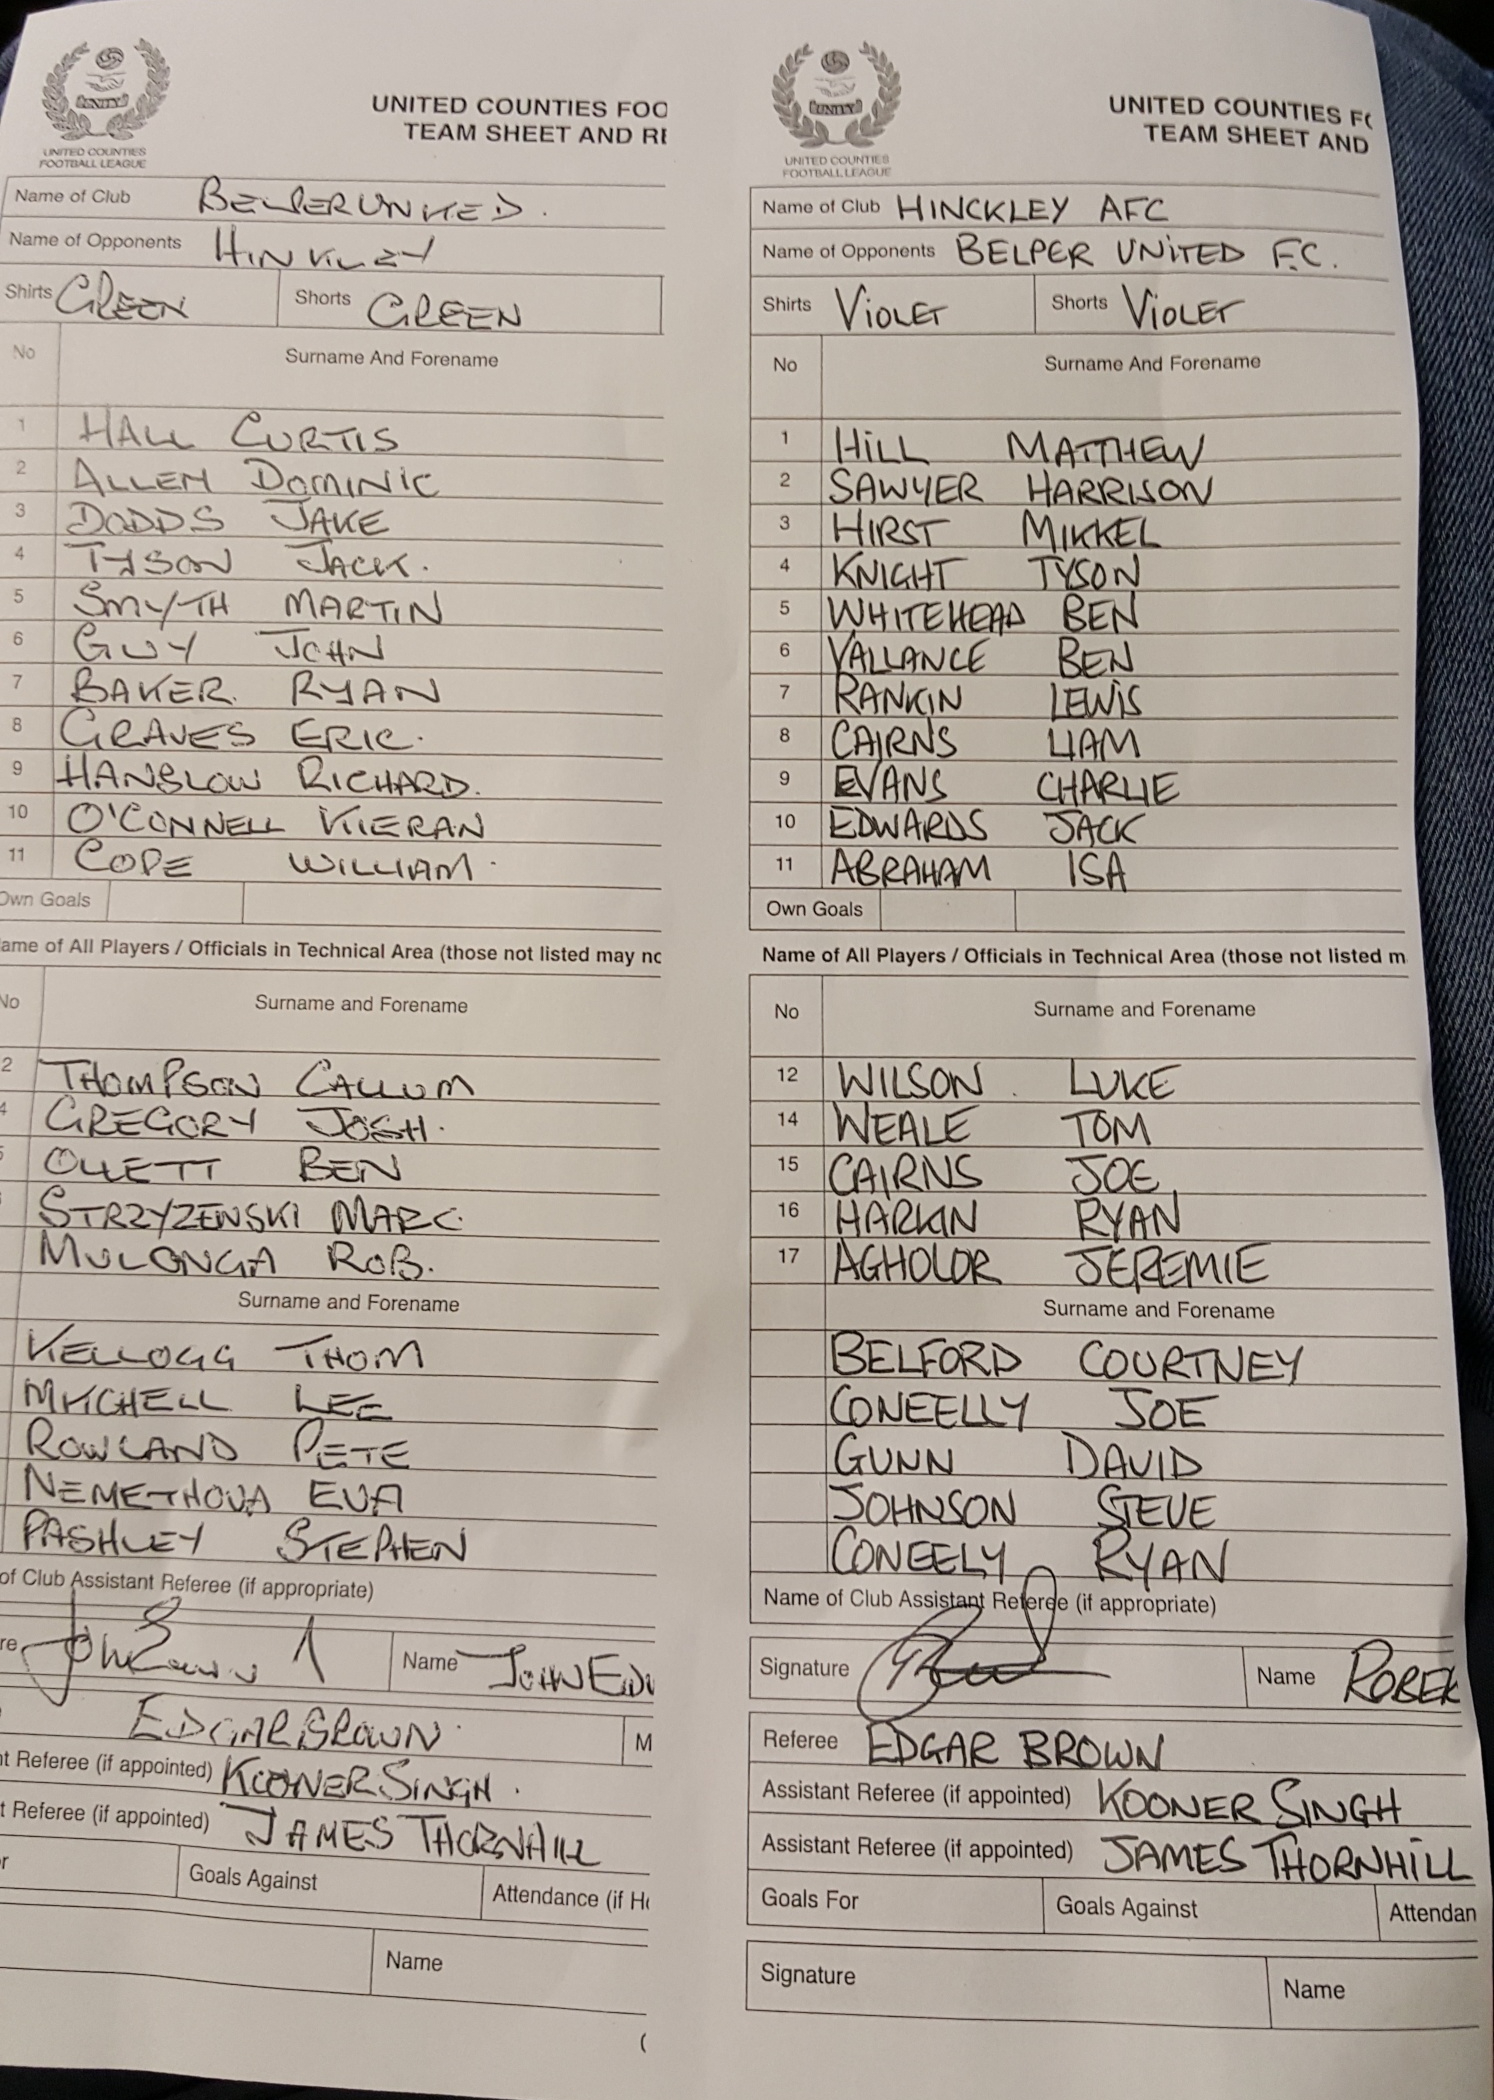 UNITY
UNITED COUNTIES
FOOTBALL LEAGUE
UNITED COUNTIES FOO
TEAM SHEET AND RE
Name of Club BELPER UNITED.
Name of Opponents HINKLEY
Shirts GREEN Shorts GREEN
No Surname And Forename
1 HALL CURTIS
2 ALLEN DOMINIC
3 DODDS JAKE
4 TYSON JACK.
5 SMYTH MARTIN
6 GUY JOHN
7 BAKER. RYAN
8 GRAVES ERIC.
9 HANSLOW RICHARD.
10 O'CONNELL KIERAN
11 COPE WILLIAM.
Own Goals
ame of All Players / Officials in Technical Area (those not listed may no
No Surname and Forename
2 THOMPSON CALLUM
4 GREGORY JOSH.
5 OLLETT BEN
STRZYZENSKI MARC.
MULONGA ROB.
Surname and Forename
KELLOGG THOM
MITCHELL LEE
ROWLAND PETE
NEMETHOVA EVA
PASHLEY STEPHEN
of Club Assistant Referee (if appropriate)
re Name JOHN
EDGAR BROWN. M
nt Referee (if appointed) KOONER SINGH.
t Referee (if appointed) JAMES THORNHILL
r Goals Against Attendance (if Ho
Name
(
UNITY
UNITED COUNTIES
FOOTBALL LEAGUE
UNITED COUNTIES FO
TEAM SHEET AND
Name of Club HINCKLEY AFC
Name of Opponents BELPER UNITED F.C.
Shirts VIOLET Shorts VIOLET
No Surname And Forename
1 HILL MATTHEW
2 SAWYER HARRISON
3 HIRST MIKKEL
4 KNIGHT TYSON
5 WHITEHEAD BEN
6 VALLANCE BEN
7 RANKIN LEWIS
8 CAIRNS LIAM
9 EVANS CHARLIE
10 EDWARDS JACK
11 ABRAHAM ISA
Own Goals
Name of All Players / Officials in Technical Area (those not listed m
No Surname and Forename
12 WILSON. LUKE
14 WEALE TOM
15 CAIRNS JOE
16 HARKIN RYAN
17 AGHOLOR JEREMIE
Surname and Forename
BELFORD COURTNEY
CONEELLY JOE
GUNN DAVID
JOHNSON STEVE
CONEELY RYAN
Name of Club Assistant Referee (if appropriate)
Signature Name ROBER
Referee EDGAR BROWN
Assistant Referee (if appointed) KOONER SINGH
Assistant Referee (if appointed) JAMES THORNHILL
Goals For Goals Against Attendan
Signature Name